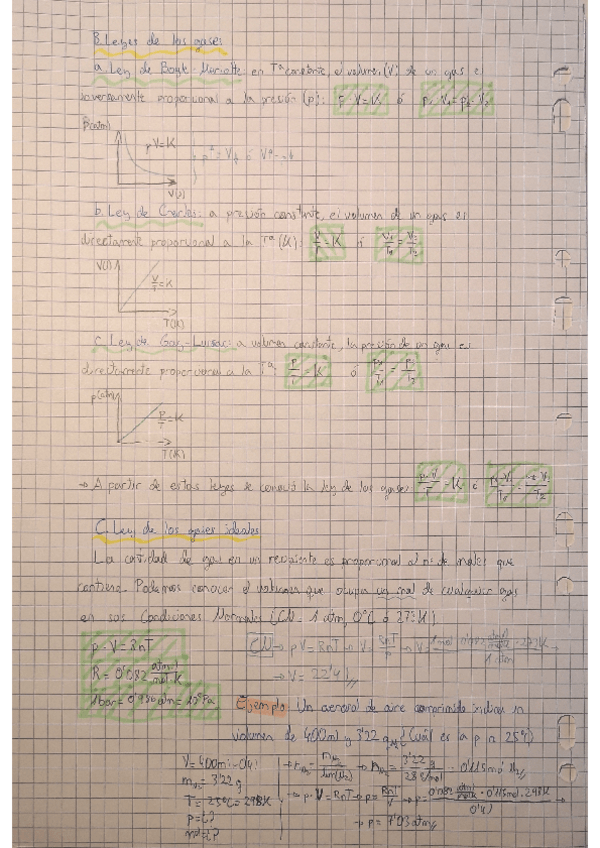 B. Leyes de los gases
a. Ley de Boyle-Mariotte: en Tª constante, el volumen (V) de un gas e
inversamente proporcional a la presión (p): p·V=K ó p₁·V₁=p₂·V₂
P(atm)
pV=K
V(l)
b. Ley de Charles: a presión constante, el volumen de un gas es
directamente proporcional a la Tª (K): V/T=K ó V₁/T₁=V₂/T₂
V(l)
V/T=K
T(K)
c. Ley de Gay-Lussac: a volumen constante, la presión de un gas es
directamente proporcional a la Tª: P/T=K ó P₁/T₁=P₂/T₂
p(atm)
P/T=K
T(K)
→ A partir de estas leyes se conoció la ley de los gases: p·V/T=K ó p₁·V₁/T₁=p₂·V₂/T₂
C. Ley de los gases ideales
La cantidad de gas en un recipiente es proporcional al nº de moles que
contiene. Podemos conocer el volumen que ocupa un mol de cualquier gas
en sus Condiciones Normales (CN. 1 atm, 0ºC ó 273K)
p·V=RnT
R=0'082 atm·l/mol·K
CN → pV=RnT → V=RnT/p
→ V=22'4l
Ejemplo: Un aerosol de aire comprimido indica un
volumen de 400ml y 3'22 g ¿Cuál es la p a 25ºC?
V=400ml=0'4l
m=3'22g
T=25ºC=298K
p=¿?
n=¿?
3'22 g / 28 g/mol = 0'115mol
→ p·V=RnT → p=RnT/V → p=0'082 atm·l/mol·K · 0'115mol·298K / 0'4l →
→ p=7'03atm